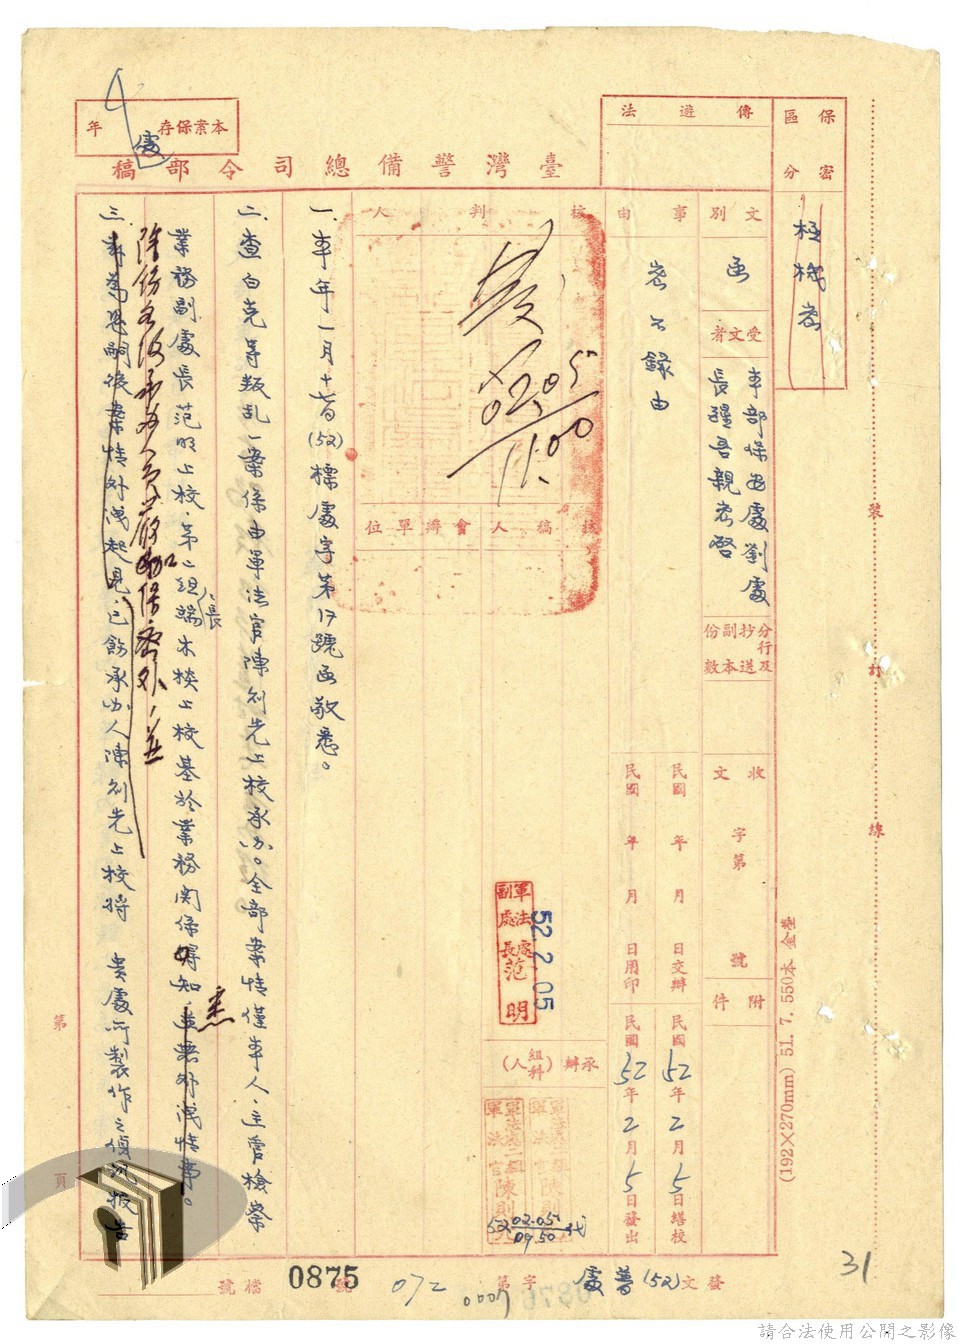 保密
區分
極機密
傳遞法
本案保存 年
臺灣警備總司令部稿
文別
函
受文者
本部保安處劉處
長醒吾親密啓
分行及
抄送
副本
份數
收文
字第 號
附件
事由
密不錄由
民國 年 月 日交辦
民國 年 月 日用印
民國52年2月5日繕校
民國52年2月5日發出
核判人
發
02.05
11.00
核稿人
會辦單位
軍法處
副處長
范明
52.2.05
承辦(組科人)
52 02.05
09.50
一、本年一月十七日(52)標處字第17號函敬悉。
二、查白克等叛乱一案係由軍法官陳則先上校承办。全部案情僅本人、主管檢察
業務副處長范明上校、第二組組長端木棪上校基於業務関係得知,並無外洩情事。
悉
除飭各該承办人員嚴加保密外,並
三、本為恐嗣後案情外洩起見,已飭承办人陳則先上校將 貴處所製作之偵訊報告
第 頁
發文(52)普處字第 號
072
0007
0875
檔號
31
裝 訂 線
(192×270mm) 51. 7. 550本
請合法使用公開之影像